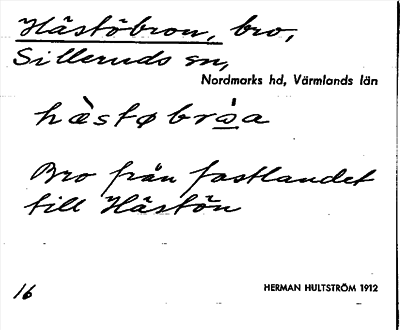 Hästöbron, bro,
Silleruds sn,
Nordmarks hd, Värmlands län
hæ̀støbrṑa
Bro från fastlandet
till Hästön
16
HERMAN HULTSTRÖM 1912